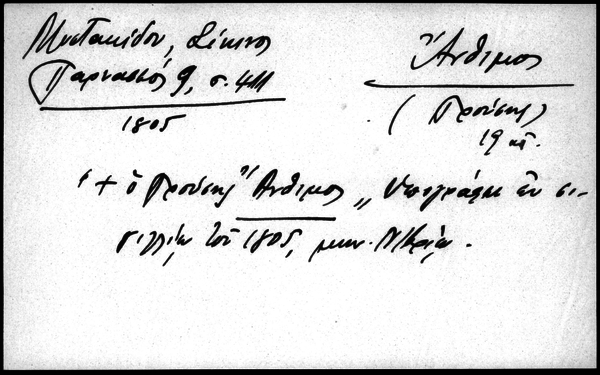 Μυστακίδου, Σίκινος
Παρνασσός 9, σ. 411
1805
Ἄνθιμος
(Προύσης)
19 αἰ.
"+ ὁ Προύσης Ἄνθιμος„ ὑπογράφει ἐν σι-
γιλλίῳ τοῦ 1805, μην.